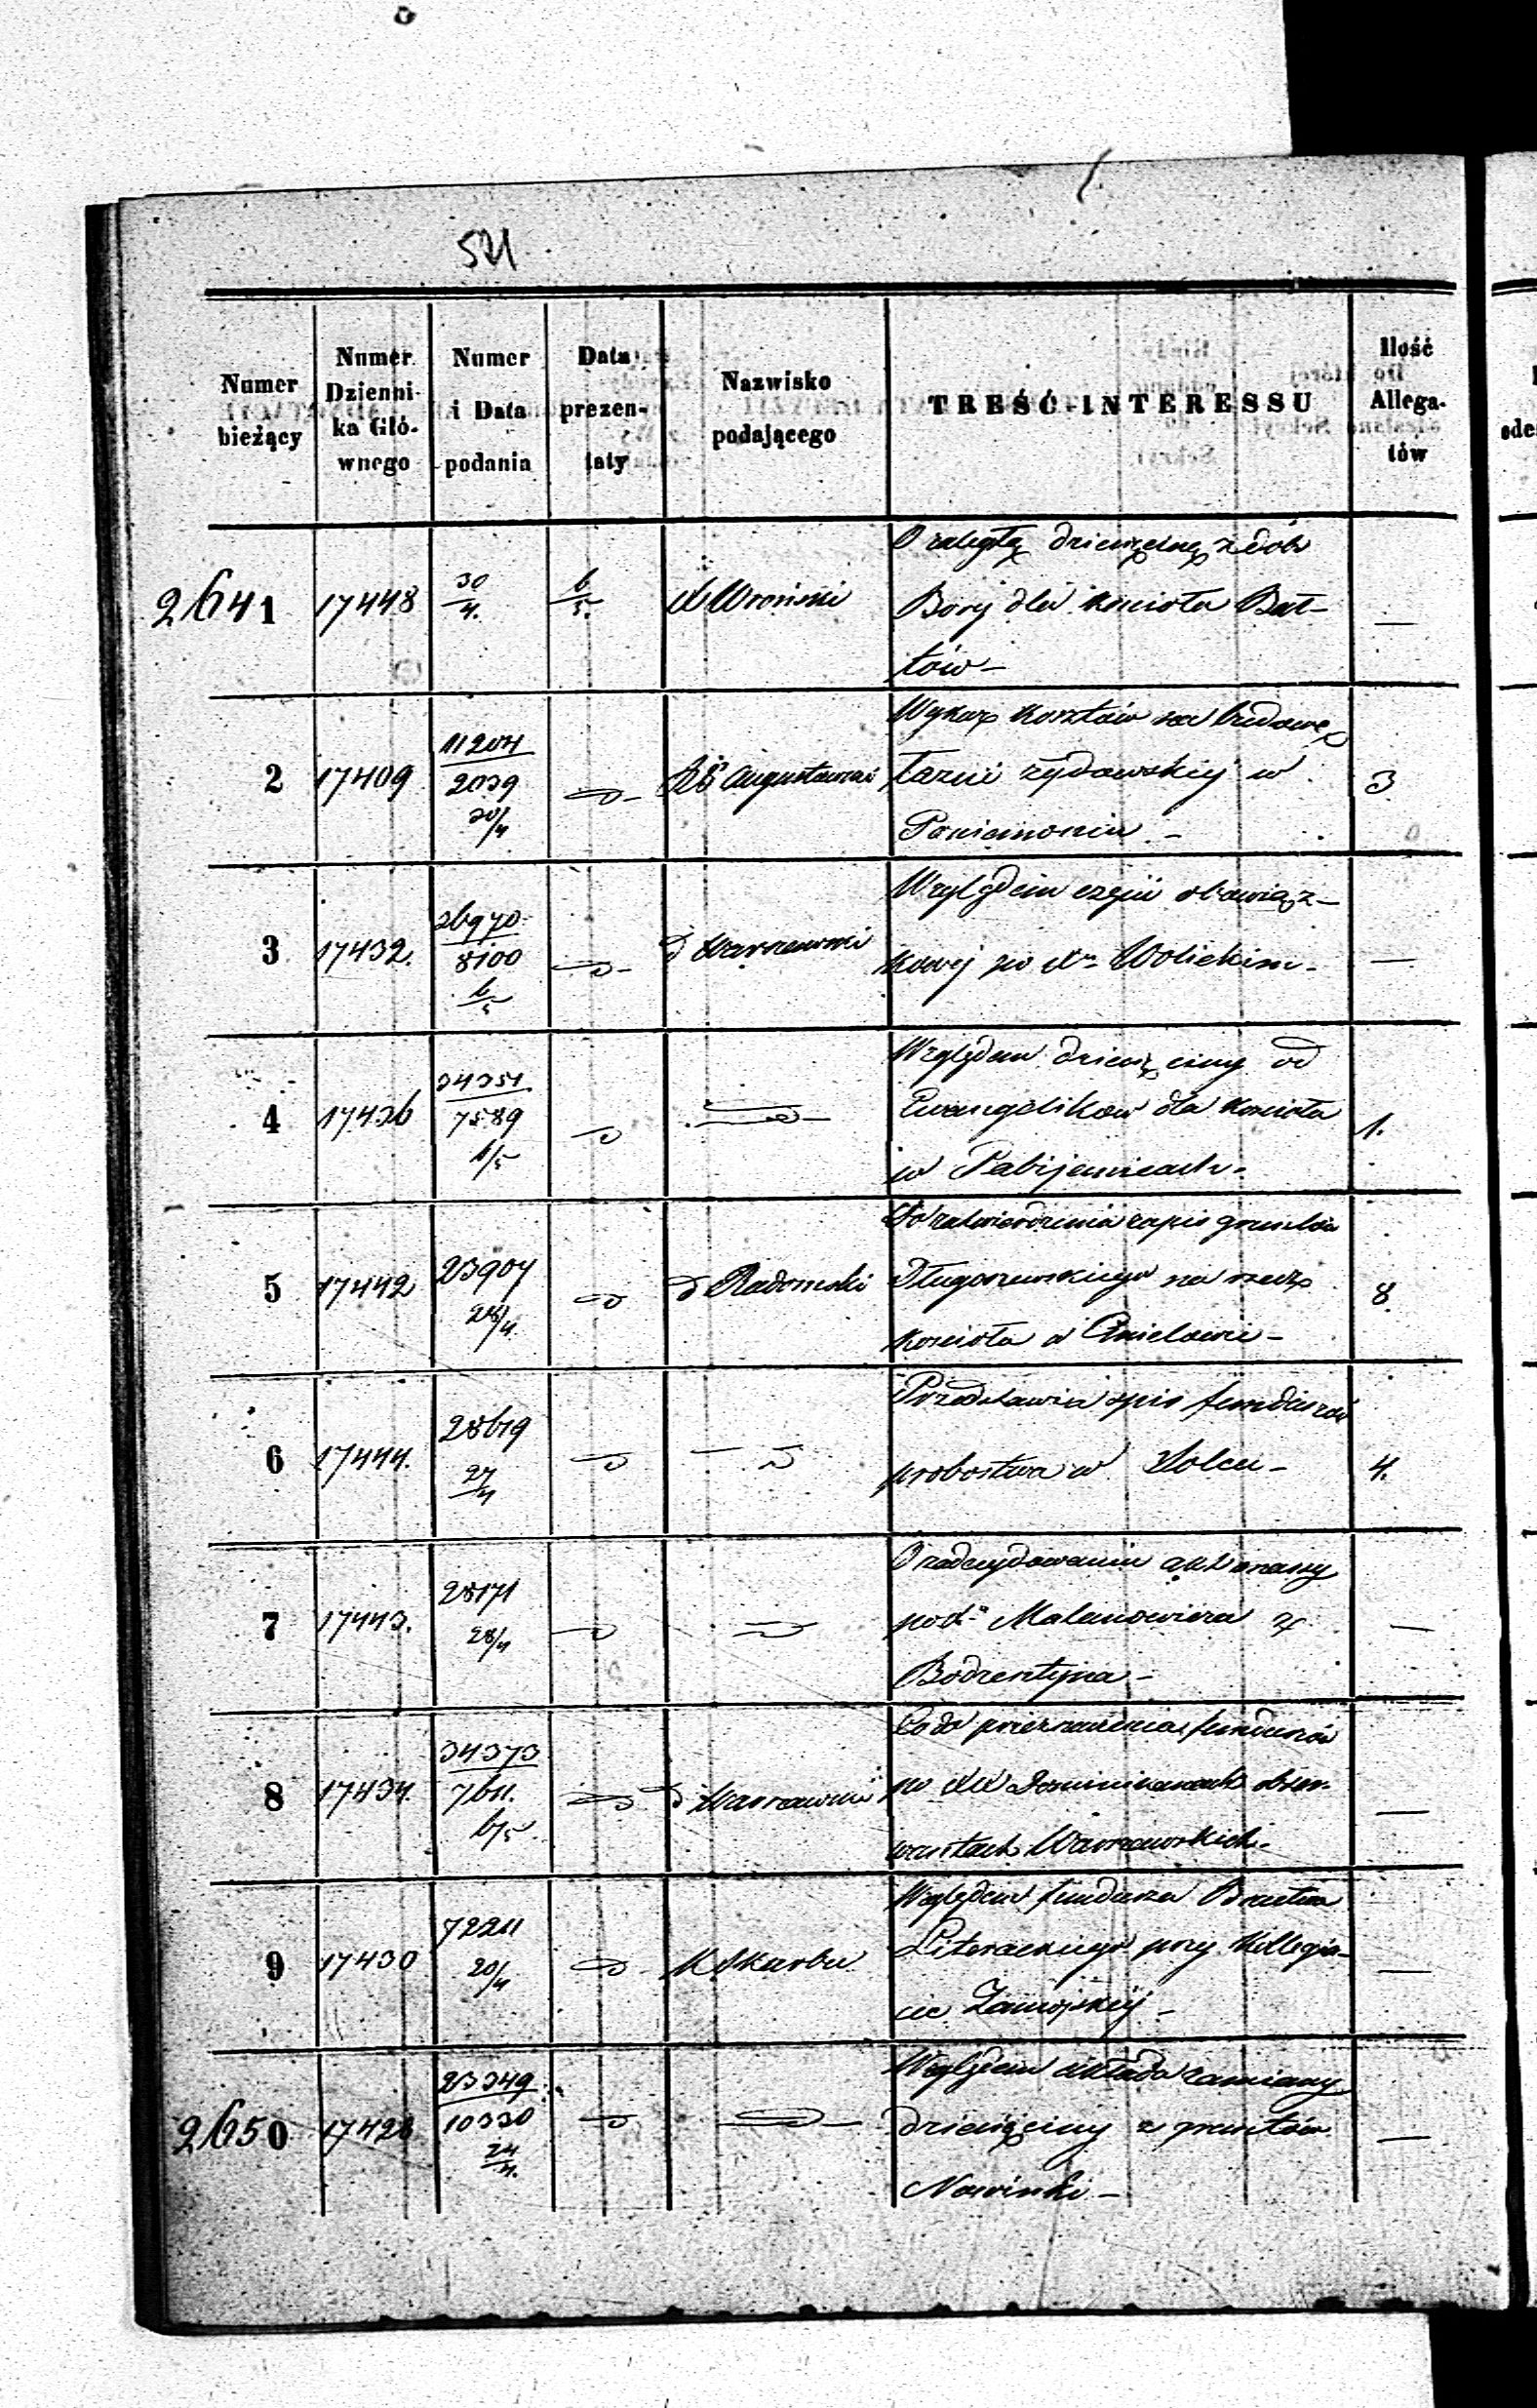 521
Numer bieżący | Numer Dziennika Głównego | Numer i Data podania | Data prezentaty | Nazwisko podającego | TREŚĆ INTERESSU | Ilość Allegatów
2641 17448 30/4. 6/5. X Wroński
O zaległą dziesięcinę z dóbr
Bory dla kościoła Bał-
tów –
2 17409 11204/2039 30/4 Augustowski 3
Wykaz kosztów na budowę
łaźni żydowskiej w
Poniemoniu –
3 17432. 26970/8100 6/5 Warszawski —
Względem czejii obowiąz-
kowej po Xu Wolickim –
4 17436 34351/7589 1/5 1.
Względem dziesięciny od
Ewangelików dla kościoła
w Pabijanicach –
5 17442 23904 28/4 Radomski 8
Do zatwierdzenia zapis gruntów
Długoszewskiego na rzecz
kościoła w Ćmielowie –
6 17444. 28619 27/4 4.
Przedstawia opis funduszów
probostwa w Solcu –
7 17443. 28171 28/4 —
O zadecydowaniu
Malanowicza z
Bodzentyna –
8 17434. 34373/7611. 6/5 Warszawski —
Co do przeznaczenia funduszów
po XX Dominikanach obser-
wantach Warszawskich –
9 17430 72211 20/4 K Skarbu —
Względem funduszu Bractwa
Literackiego przy Kollegia-
cie Zamojskiej –
2650 17428 23349/10330 24/4. —
Względem układu zamiany
dziesięciny z gruntów
Nowinki –